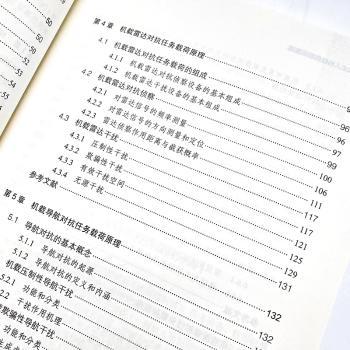 50
50
52
53
54
55
第4章 机载雷达对抗任务载荷原理
4.1 机载雷达对抗任务载荷的组成
4.1.1 机载雷达对抗侦察设备的基本组成
4.1.2 机载雷达干扰设备的基本组成
4.2 机载雷达对抗侦察
4.2.1 对雷达信号的频率测量
4.2.2 对雷达信号的方向测量和定位
4.2.3 雷达侦察作用距离与截获概率
4.3 机载雷达干扰
4.3.1 压制性干扰
4.3.2 欺骗性干扰
4.3.3 有效干扰空间
4.3.4 无源干扰
参考文献
第5章 机载导航对抗任务载荷原理
5.1 导航对抗的基本概念
5.1.1 导航对抗的起源
5.1.2 导航对抗的定义和内涵
机载压制性导航干扰
功能和分类
干扰作用机理
欺骗性导航干扰
功能和分类
96
96
97
99
99
100
106
111
117
117
121
125
129
131
132
132